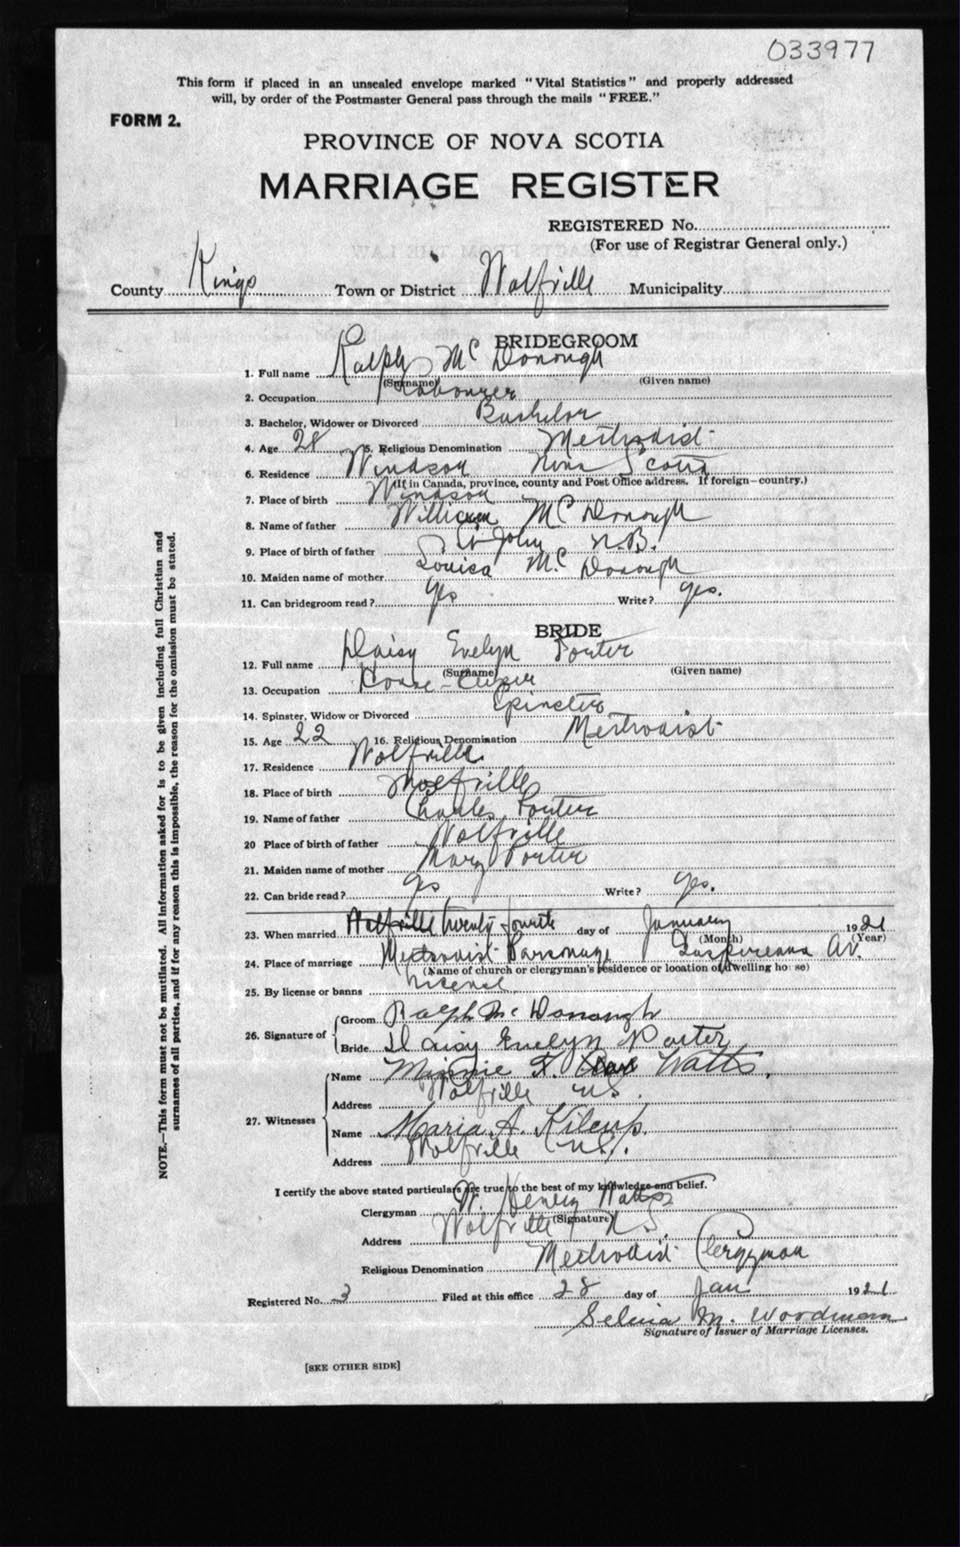 033977
This form if placed in an unsealed envelope marked "Vital Statistics" and properly addressed
will, by order of the Postmaster General pass through the mails "FREE."
FORM 2.
PROVINCE OF NOVA SCOTIA
MARRIAGE REGISTER
REGISTERED No.
(For use of Registrar General only.)
County Kings Town or District Wolfville Municipality
BRIDEGROOM
1. Full name Ralph McDonough
(Surname) (Given name)
2. Occupation Labourer
3. Bachelor, Widower or Divorced Bachelor
4. Age 28 5. Religious Denomination Methodist
6. Residence Windsor Nova Scotia
(If in Canada, province, county and Post Office address. If foreign—country.)
7. Place of birth Windsor
8. Name of father William McDonough
9. Place of birth of father St John N.B.
10. Maiden name of mother Louisa McDonough
11. Can bridegroom read? yes Write? yes.
BRIDE
12. Full name Daisy Evelyn Porter
(Surname) (Given name)
13. Occupation House-
14. Spinster, Widow or Divorced Spinster
15. Age 22 16. Religious Denomination Methodist
17. Residence Wolfville
18. Place of birth Wolfville
19. Name of father Charles Porter
20 Place of birth of father Wolfville
21. Maiden name of mother Mary Porter
22. Can bride read? yes Write? yes.
23. When married Wolfville twenty fourth day of January 1921
(Month) (Year)
24. Place of marriage Methodist Parsonage Gaspereau Av.
(Name of church or clergyman's residence or location of dwelling house)
25. By license or banns License
26. Signature of Groom Ralph McDonough
Bride Daisy Evelyn Porter
27. Witnesses Name Minnie F. Watts.
Address Wolfville N.S.
Name Maria A. Kilcup.
Address Wolfville N.S.
I certify the above stated particulars are true to the best of my knowledge and belief.
Clergyman W. Henry Watts
(Signature)
Address Wolfville N.S.
Religious Denomination Methodist Clergyman
Registered No. 3 Filed at this office 28 day of Jan 1921
Selina M. Woodman
Signature of Issuer of Marriage Licenses.
[SEE OTHER SIDE]
NOTE.—This form must not be mutilated. All information asked for is to be given including full Christian and
surnames of all parties, and if for any reason this is impossible, the reason for the omission must be stated.